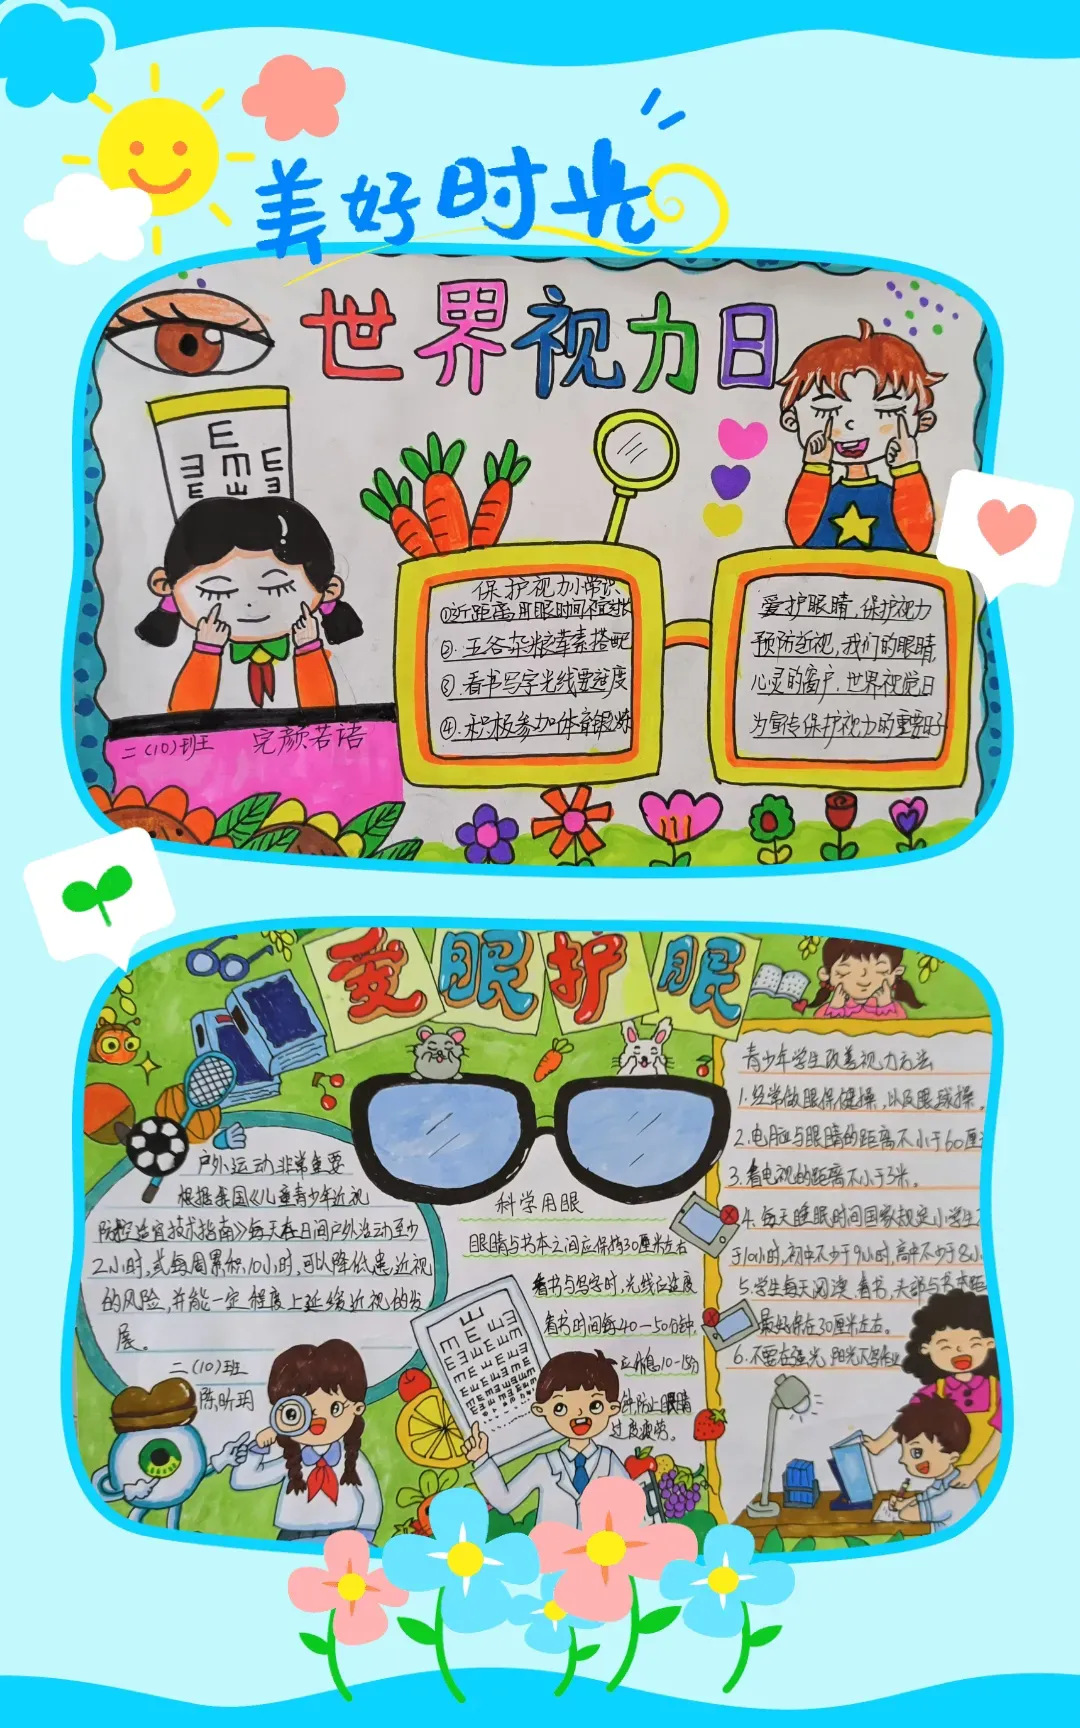 美好时光
世界视力日
E
E m E
保护视力小常识
①近距离用眼时间不宜过长
②.五谷杂粮荤素搭配
③.看书写字光线要适度
④.积极参加体育锻炼
爱护眼睛,保护视力
预防近视,我们的眼睛
心灵的窗户.世界视觉日
为宣传保护视力的重要日子
二(10)班 完颜若语
爱眼护眼
户外运动非常重要
根据我国《儿童青少年近视
防控适宜技术指南》每天在日间户外活动至少
2小时,或每周累积10小时,可以降低患近视
的风险,并能一定程度上延缓近视的发
展。
二(10)班
陈昕玥
科学用眼
眼睛与书本之间应保持30厘米左右
看书与写字时,光线应适度
看书时间每40-50分钟,
应休息10-15分
钟防止眼睛
过度疲劳。
青少年学生改善视力方法
1.经常做眼保健操,以及眼球操。
2.电脑与眼睛的距离不小于60厘
3.看电视的距离不小于3米。
4.每天睡眠时间国家规定小学生
于10小时,初中不少于9小时,高中不少于8小
5.学生每天阅读.看书,头部与书本距
最好保在30厘米左右。
6.不要在强光,阳光下写作业